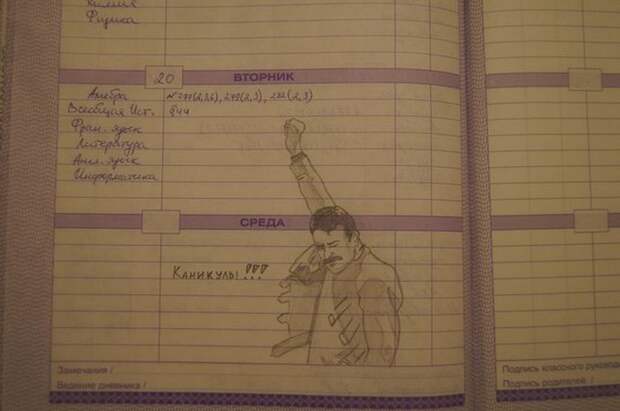 Химия
Физика
20 ВТОРНИК
Алгебра
Всеобщая Ист. §44
Фран. язык
Литература
Англ. язык
Информатика
СРЕДА
КАНИКУЛЫ!!!
Замечания /
Ведение дневника /
Подпись классного руковод
Подпись родителей /